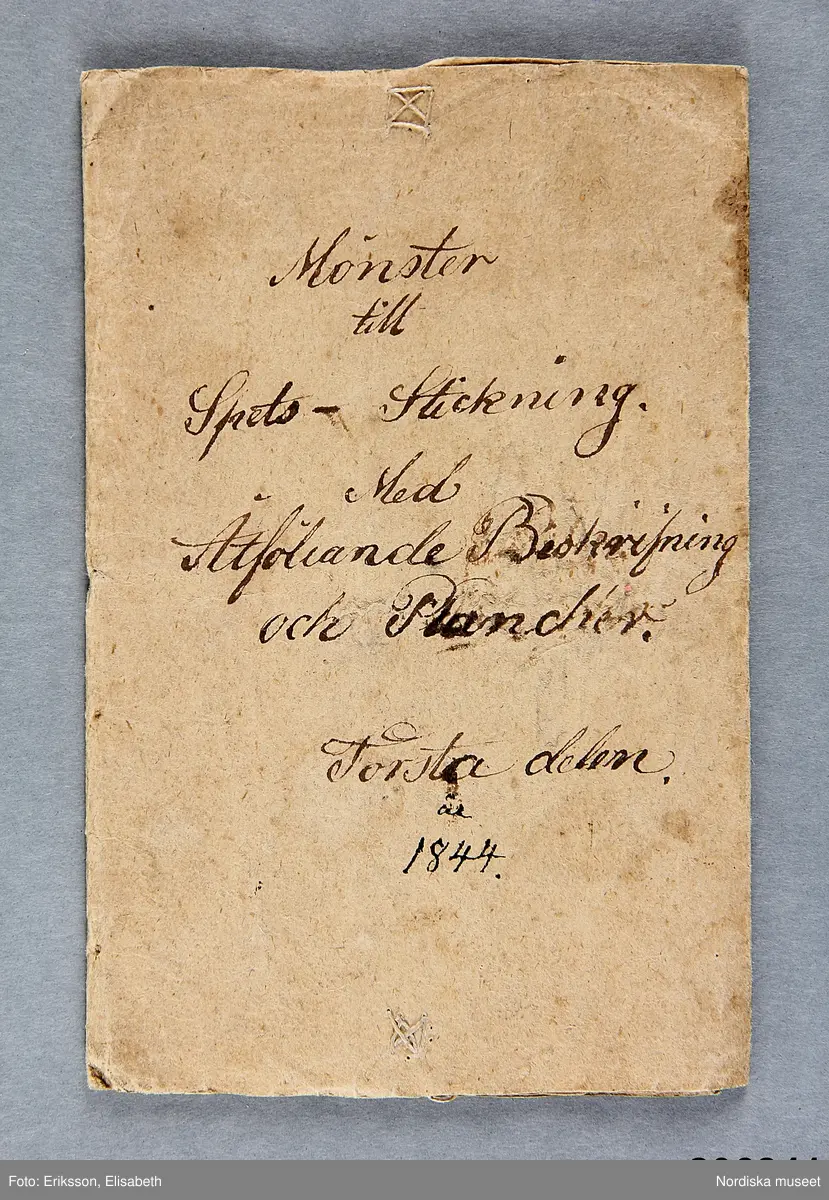 Mönster
till
Spets - Stickning.
Med
Åtföliande Beskrifning
och Plancher.
Första delen.
år
1844.
Foto: Eriksson, Elisabeth
Nordiska museet